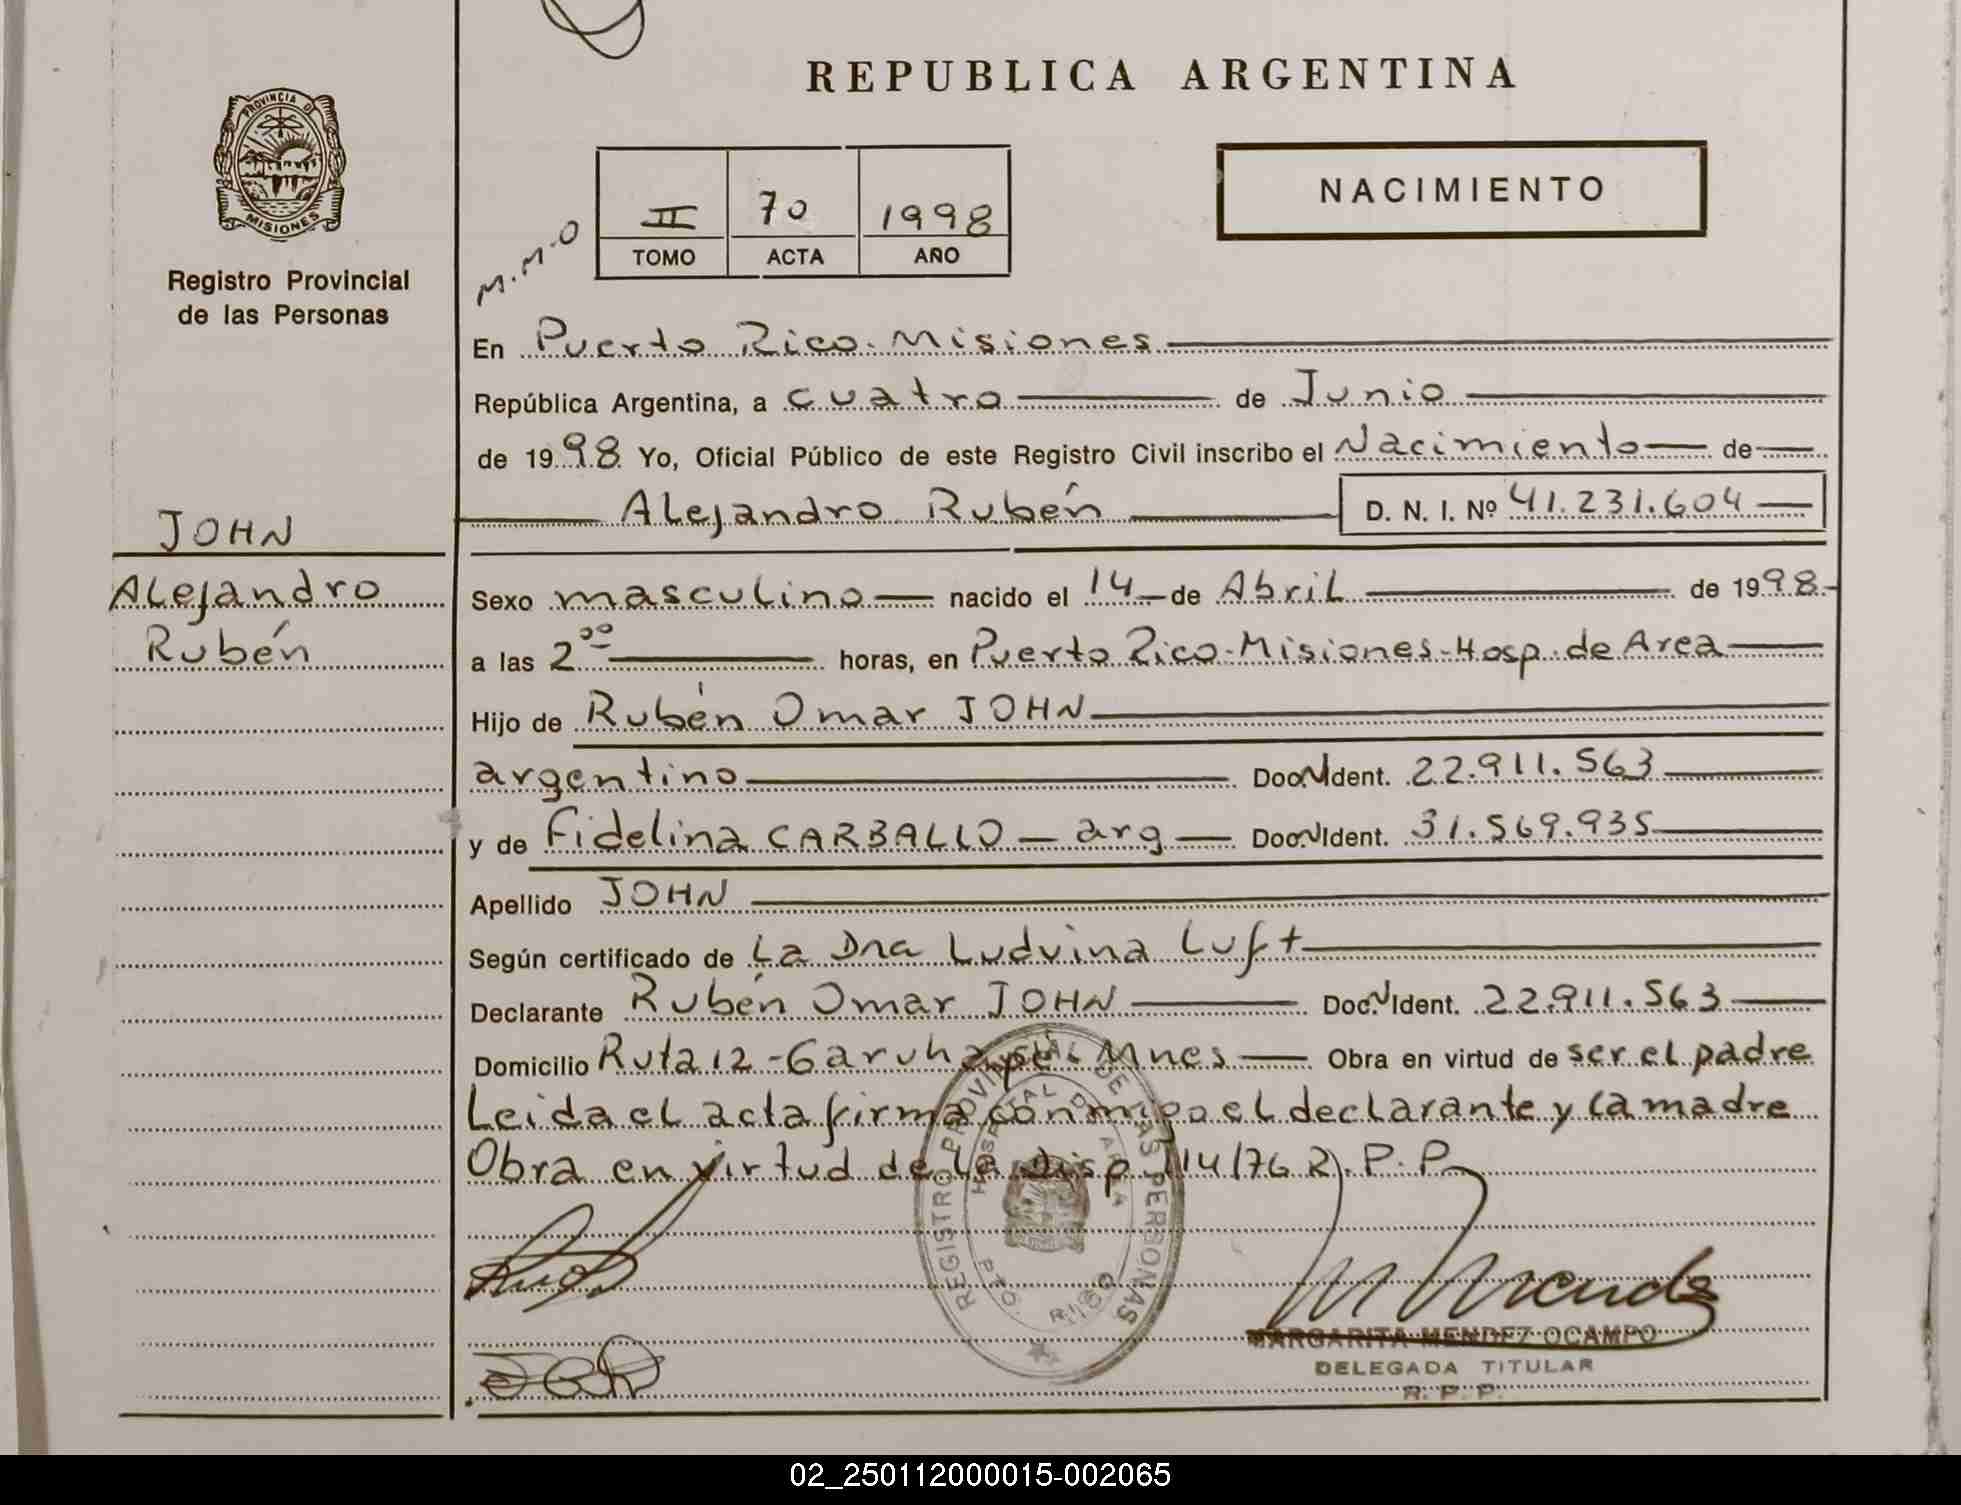 REPUBLICA ARGENTINA
PROVINCIA DE
MISIONES
Registro Provincial
de las Personas
II 70 1998
TOMO ACTA AÑO
NACIMIENTO
M.M.O
En Puerto Rico. Misiones
República Argentina, a cuatro de Junio
de 1998 Yo, Oficial Público de este Registro Civil inscribo el Nacimiento de
Alejandro Rubén D. N. I. Nº 41.231.604
JOHN
Alejandro
Rubén
Sexo masculino nacido el 14 de Abril de 1998
a las 2 00 horas, en Puerto Rico-Misiones-Hosp. de Area
Hijo de Rubén Omar JOHN
argentino Doc. N Ident. 22.911.563
y de Fidelina CARBALLO - arg - Doc. N Ident. 31.569.935
Apellido JOHN
Según certificado de La Dra Ludvina Luft
Declarante Rubén Omar JOHN Doc. N Ident. 22.911.563
Domicilio Ruta 12 - Garuhapé. Mnes Obra en virtud de ser el padre
Leida el acta firma conmigo el declarante y la madre
Obra en virtud de la Disp. 114/76 R.P.P.
REGISTRO PROVINCIAL DE LAS PERSONAS
HOSPITAL DE AREA
PTO. RICO
MARGARITA MENDEZ OCAMPO
DELEGADA TITULAR
R. P. P.
02_250112000015-002065